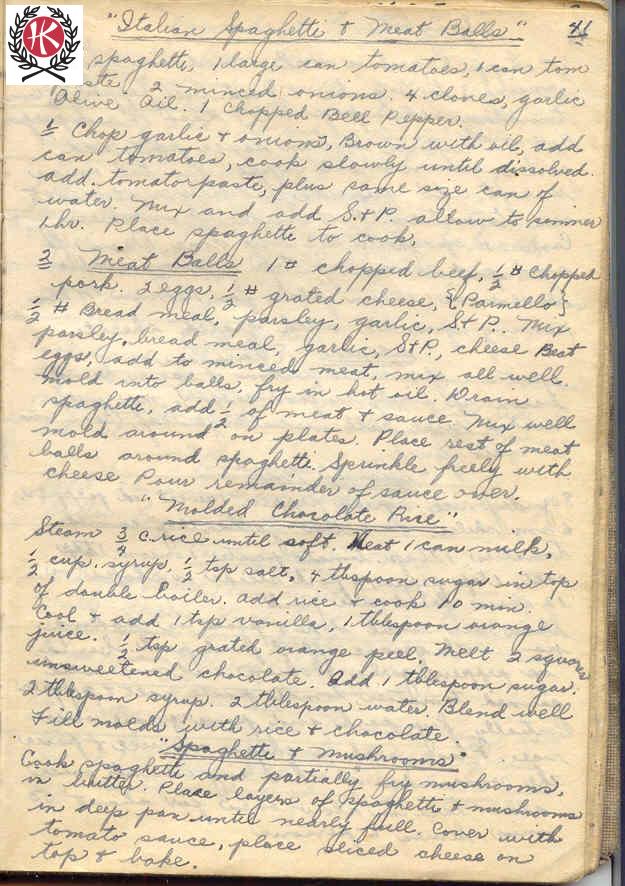 "Italian Spaghetti & Meat Balls" 41
spaghetti, 1 large can tomatoes, 1 can tom
paste. 2 minced onions. 4 cloves, garlic
Olive Oil. 1 Chopped Bell Pepper.
Chop garlic & onions, Brown with oil, add
can tomatoes, cook slowly until dissolved.
add tomatoe paste, plus same size can of
water. Mix and add S. & P. allow to simmer
1 hr. Place spaghetti to cook.
2 Meat Balls 1 # chopped beef, 1/2 # Chopped
pork. 2 eggs, 1/2 # grated cheese, {Parmello}
1/2 # Bread meal, parsley, garlic, S & P. Mix
parsley, bread meal, garlic, S & P., cheese Beat
eggs, add to minced meat, mix all well.
mold into balls, fry in hot oil. Drain
spaghetti, add 1/2 of meat & sauce. Mix well
mold around on plates. Place rest of meat
balls around spaghetti. Sprinkle freely with
cheese Pour remainder of sauce over.
"Molded Chocolate Rice"
Steam 3/4 c. rice until soft. Heat 1 can milk,
1/2 cup. syrup, 1/2 tsp salt, 4 tblspoon sugar in top
of double boiler. add rice & cook 10 min.
Cool & add 1 tsp vanilla, 1 tblespoon orange
juice. 1/2 tsp grated orange peel, Melt 2 squares
unsweetened chocolate. Add 1 tblespoon sugar.
2 tblespoon syrup. 2 tblespoon water Blend well
Fill molds with rice & chocolate.
"Spaghetti & Mushrooms"
Cook spaghetti and partially fry mushrooms,
in butter. Place layers of spaghetti & mushrooms
in deep pan until nearly full. Cover with
tomato sauce, place sliced cheese on
top & bake.
K